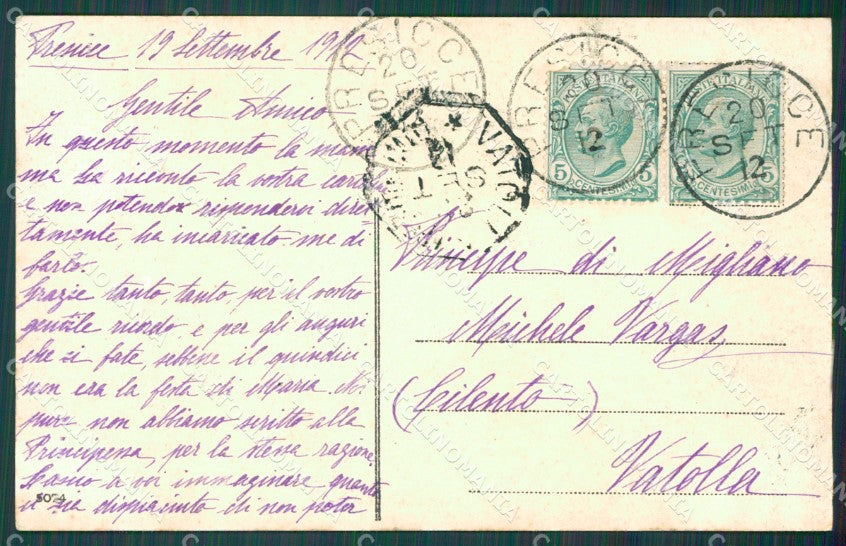 Presicce 19 Settembre 1912
Gentile Amico
In questo momento la mam
ma ha riceuto la vostra
e non potendo rispondervi diret
tamente, ha incaricato me di
farlo.
Grazie tanto, tanto, per il vostro
gentile ricordo, e per gli auguri
che ci fate, sebbene il quindici
non era la festa di Maria. Ne
pure non abbiamo scritto alla
Principessa, per la stessa ragione.
Lascio a voi immaginare quanto
ci ha dispiaciuto di non poter
5074
PRESICCE
20 SET 12
PRESICCE
20 SET 12
PRESICCE
20 SET 12
POSTE ITALIANE
5 5
CENTESIMI
POSTE ITALIANE
5
CENTESIMI
Principe di Migliano
Michele Vargas
(Cilento)
Vatolla
CARTOLINOMANIA